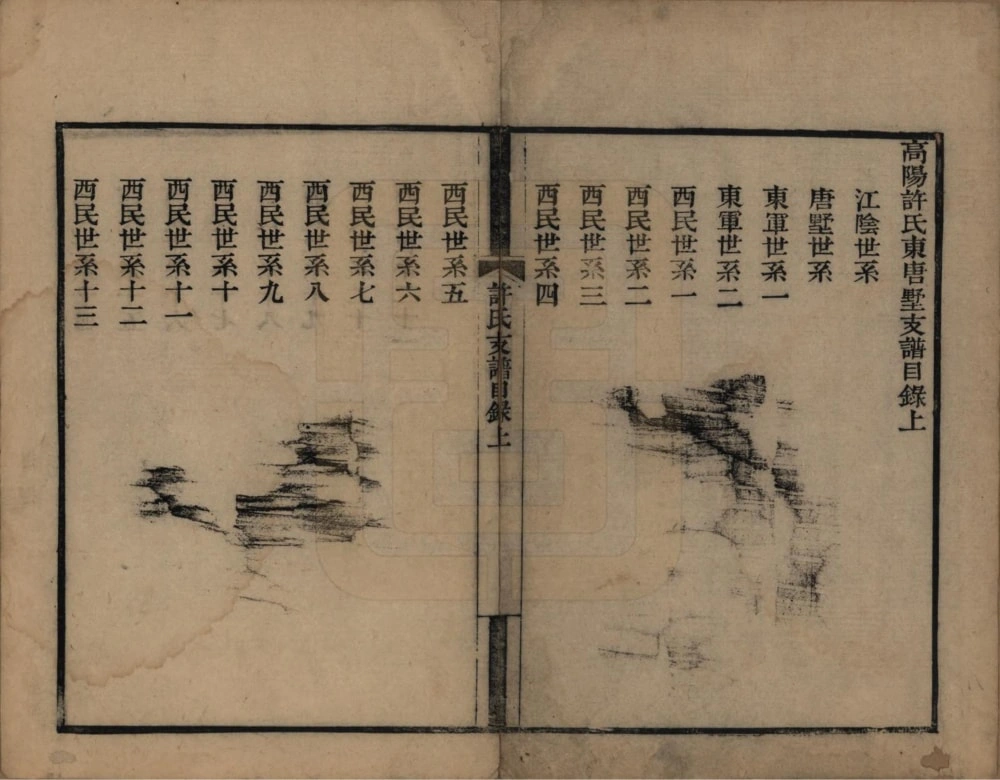 高陽許氏東唐墅支譜目錄上
江陰世系
唐墅世系
東軍世系一
東軍世系二
西民世系一
西民世系二
西民世系三
西民世系四
許氏支譜目錄上
西民世系五
西民世系六
西民世系七
西民世系八
西民世系九
西民世系十
西民世系十一
西民世系十二
西民世系十三